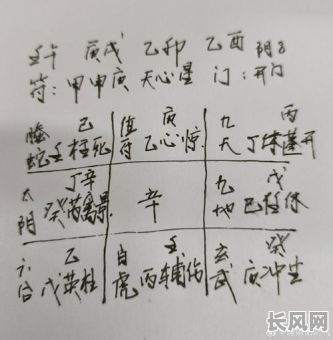 壬午 庚戌 乙卯 乙酉 阴
符：甲申庚 天心星 门：开门
己 庚 丙
螣蛇 壬柱死 值符 乙心惊 九天 丁 开
丁辛 戊
太阴 癸芮景 辛 九地 己任休
乙 壬 癸
六合 戊英杜 白虎 丙辅伤 玄武 庚冲生
长风网